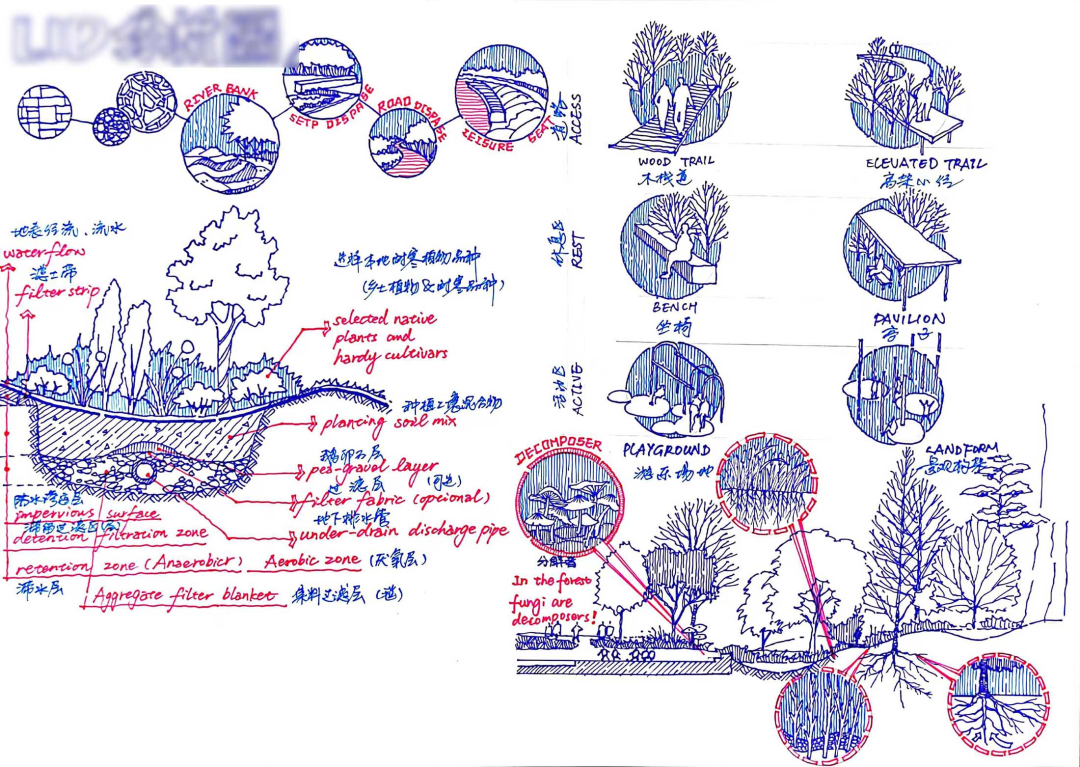 RIVER BANK
SETP DISPASE
ROAD DISPASE
LEISURE SEAT
道路
ACCESS
WOOD TRAIL
木栈道
ELEVATED TRAIL
高架小径
休息区
REST
BENCH
坐椅
PAVILION
亭子
活动区
ACTIVE
PLAYGROUND
游乐场地
LANDFORM
地表径流、流水
waterflow
滤土带
filter strip
选择本地耐寒植物品种
(乡土植物&耐寒品种)
selected native
plants and
hardy cultivars
种植土壤混合物
plancing soil mix
鹅卵石层
pea-gravel layer
过滤层 (可选)
filter fabric (opcional)
地下排水管
under-drain discharge pipe
impervious surface
detention filtration zone
retention zone (Anaerobicr) Aerobic zone (厌氧层)
滞水层
Aggregate filter blanket 集料过滤层
DECOMPOSER
分解者
In the forest
fungi are
decomposers!